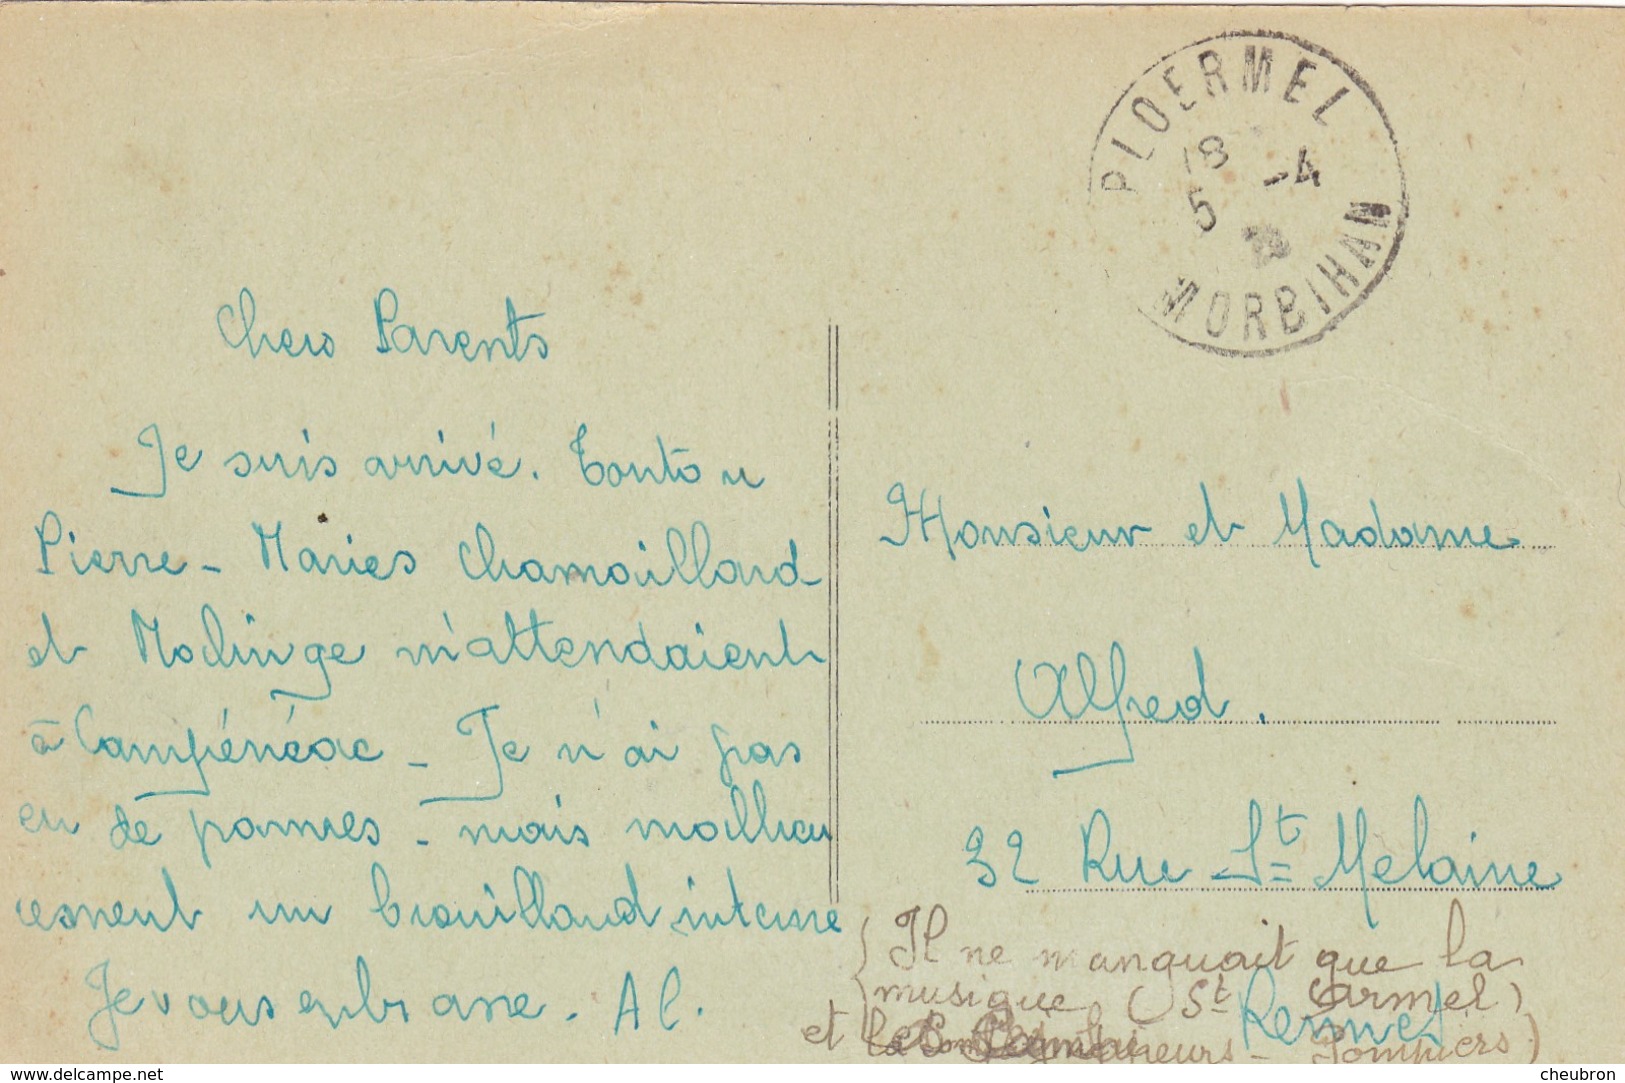 PLOERMEL
18 -4
5
MORBIHAN
Chers Parents
Je suis arrivé. Tonton
Pierre - Maries Chamaillard
et Nadinge m'attendaient
à Campénéac - Je n'ai pas
eu de pannes - mais malheu
resment un brouillard intense
Je vous enbrasse. Al.
Monsieur et Madame
Alfred.
32 Rue St Melaine
Rennes
Il ne manquait que la
musique (St Carmel)
et les Pompiers)
www.delcampe.net
cheubron